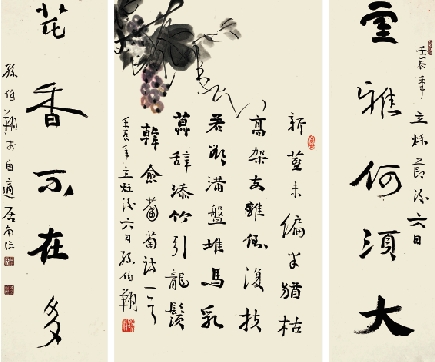 室雅何須大
壬辰年立秋節後六日
新莖未徧半猶枯
高架支離倒復扶
若欲滿盤堆馬乳
莫辭添竹引龍鬚
韓愈葡萄詩一首
壬辰年立秋後六日孫伯翔
花香不在多
孫伯翔於自適居南